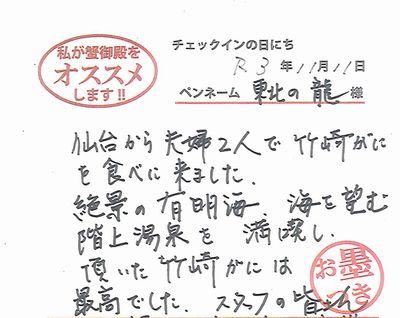 私が蟹御殿を
オススメ
します!!
チェックインの日にち
R3年11月11日
ペンネーム 東北の龍 様
仙台から夫婦2人で竹崎がに
を食べに来ました.
絶景の有明海 海を望む
階上湯泉を満喫し.
頂いた竹崎がには
最高でした. スタッフの皆さん
お墨つき